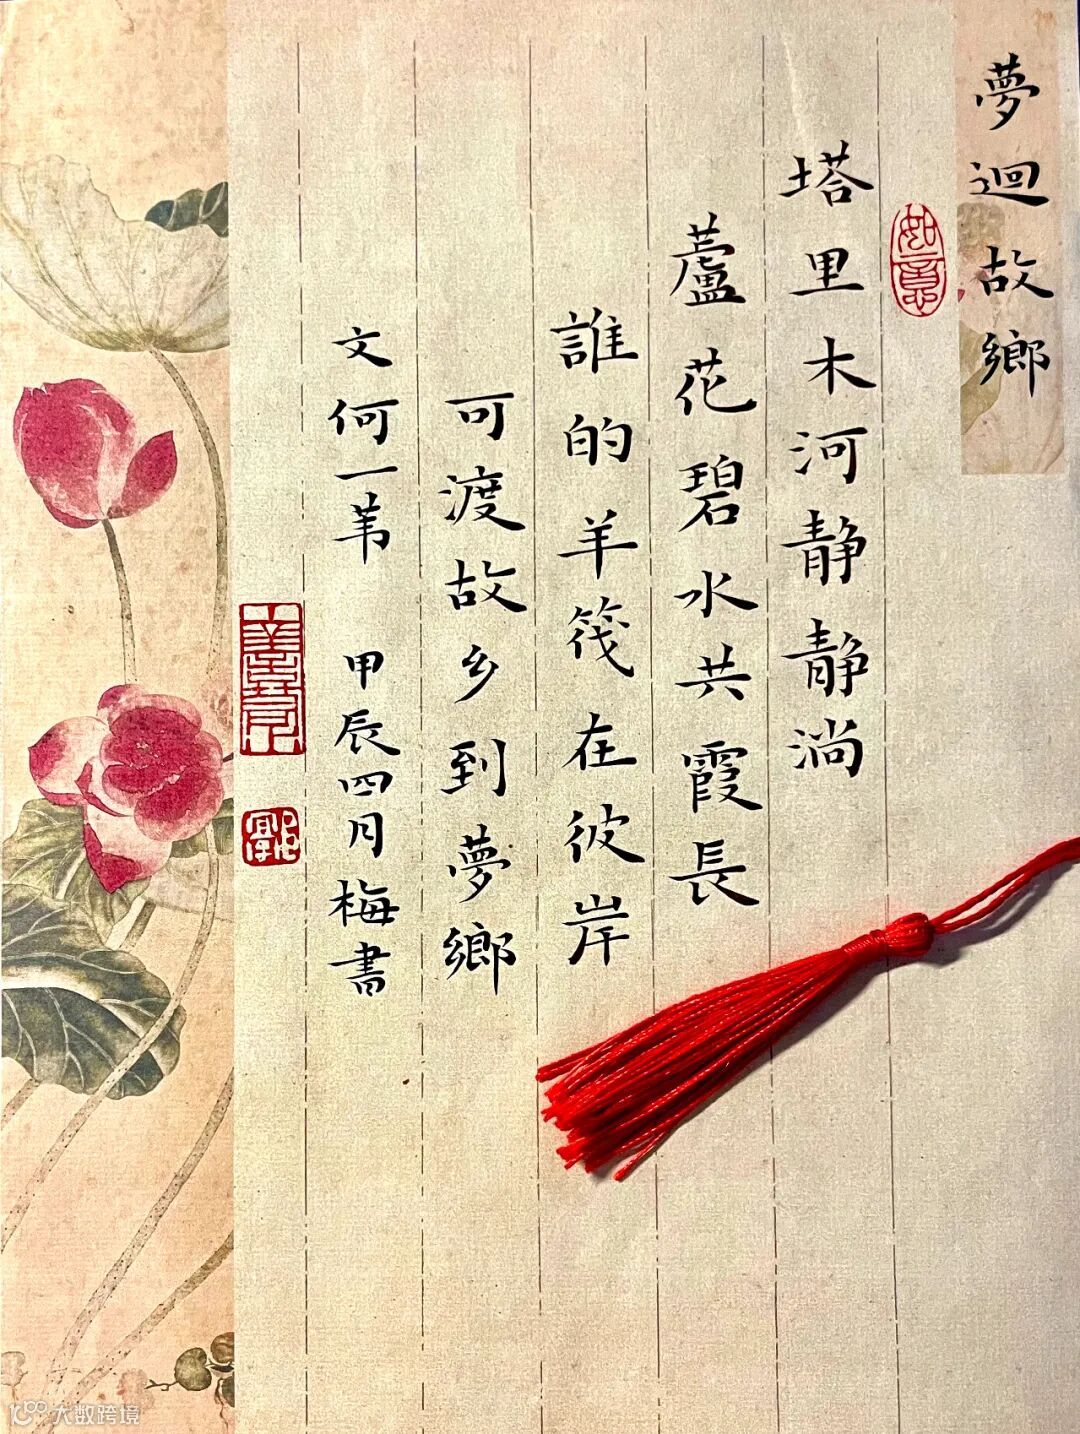 夢迴故鄉
如意
塔里木河静静淌
蘆花碧水共霞長
誰的羊筏在彼岸
可渡故乡到夢鄉
文何一苇 甲辰四月梅書
大数跨境